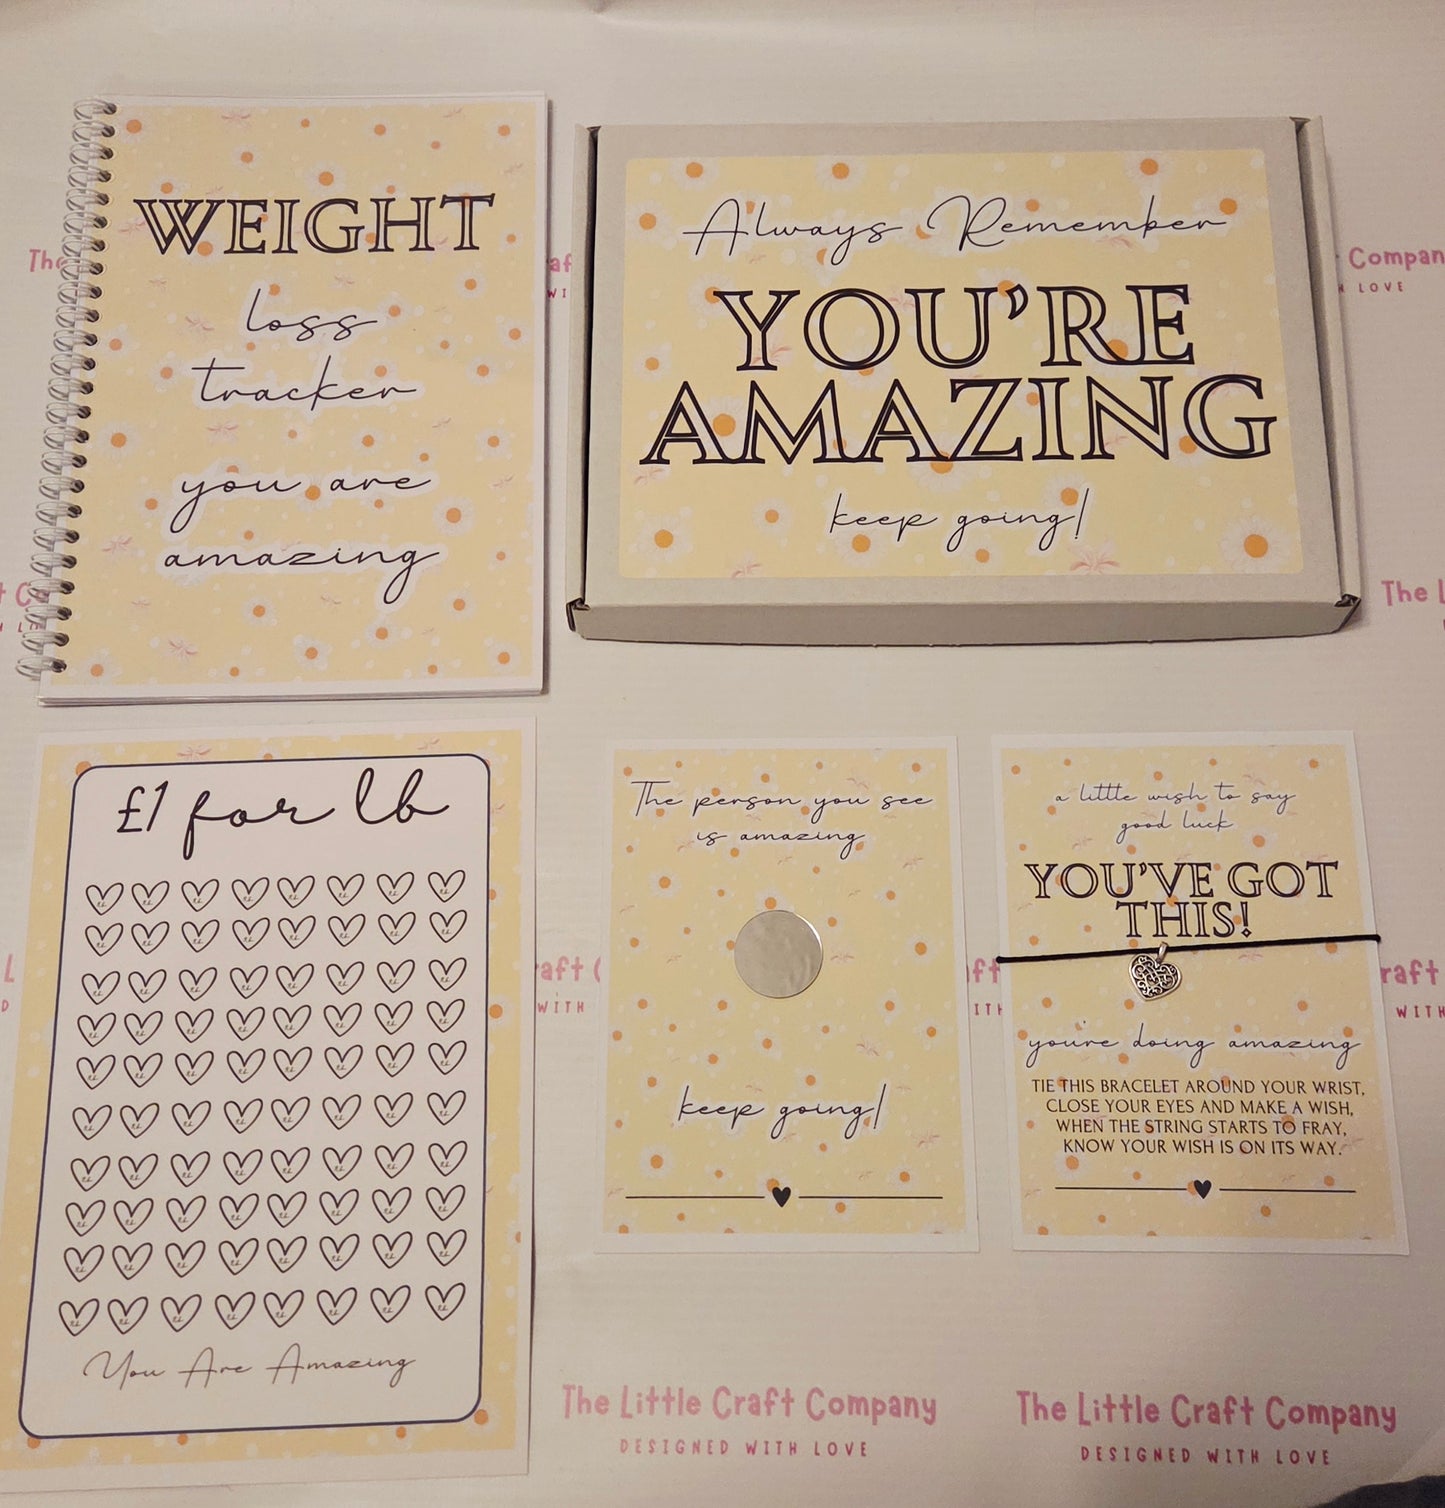 WEIGHT
loss
tracker
you are
amazing
Always Remember
YOU'RE
AMAZING
keep going!
£1 for lb
You Are Amazing
The person you see
is amazing
keep going!
a little wish to say
good luck
YOU'VE GOT
THIS!
you're doing amazing
TIE THIS BRACELET AROUND YOUR WRIST,
CLOSE YOUR EYES AND MAKE A WISH,
WHEN THE STRING STARTS TO FRAY,
KNOW YOUR WISH IS ON ITS WAY.
The Little Craft Company
DESIGNED WITH LOVE
The Little Craft Company
DESIGNED WITH LOVE